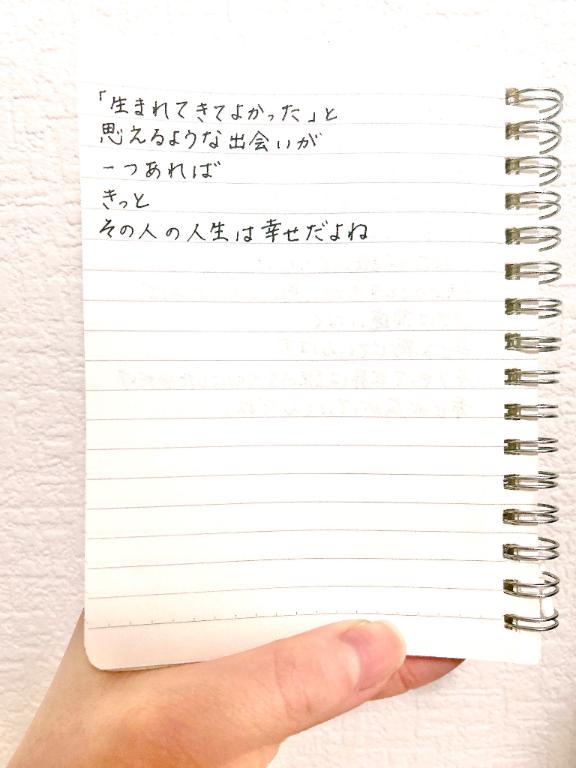 「生まれてきてよかった」と
思えるような出会いが
一つあれば
きっと
その人の人生は幸せだよね